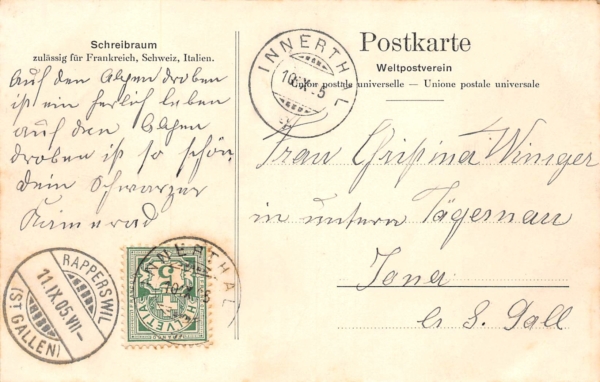 Schreibraum
zulässig für Frankreich, Schweiz, Italien.
Auf den Alpen droben
ist ein herlich leben
auf den Alpen
droben ist so schön,
dein schwarzer
Kamerad
Postkarte
Weltpostverein
Union postale universelle — Unione postale universale
INNERTHAL
10.IX.05
Frau Christina Winiger
in untern Tägernau
Jona
Ct. S. Gall
RAPPERSWIL
11.IX.05.VII-
(ST. GALLEN)
INNERTHAL
10.IX.05
HELVETIA
5